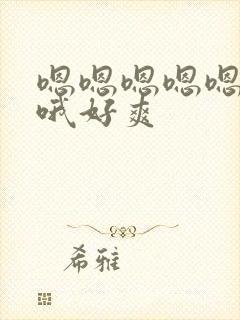 嗯嗯嗯嗯嗯
哦好爽
希雅